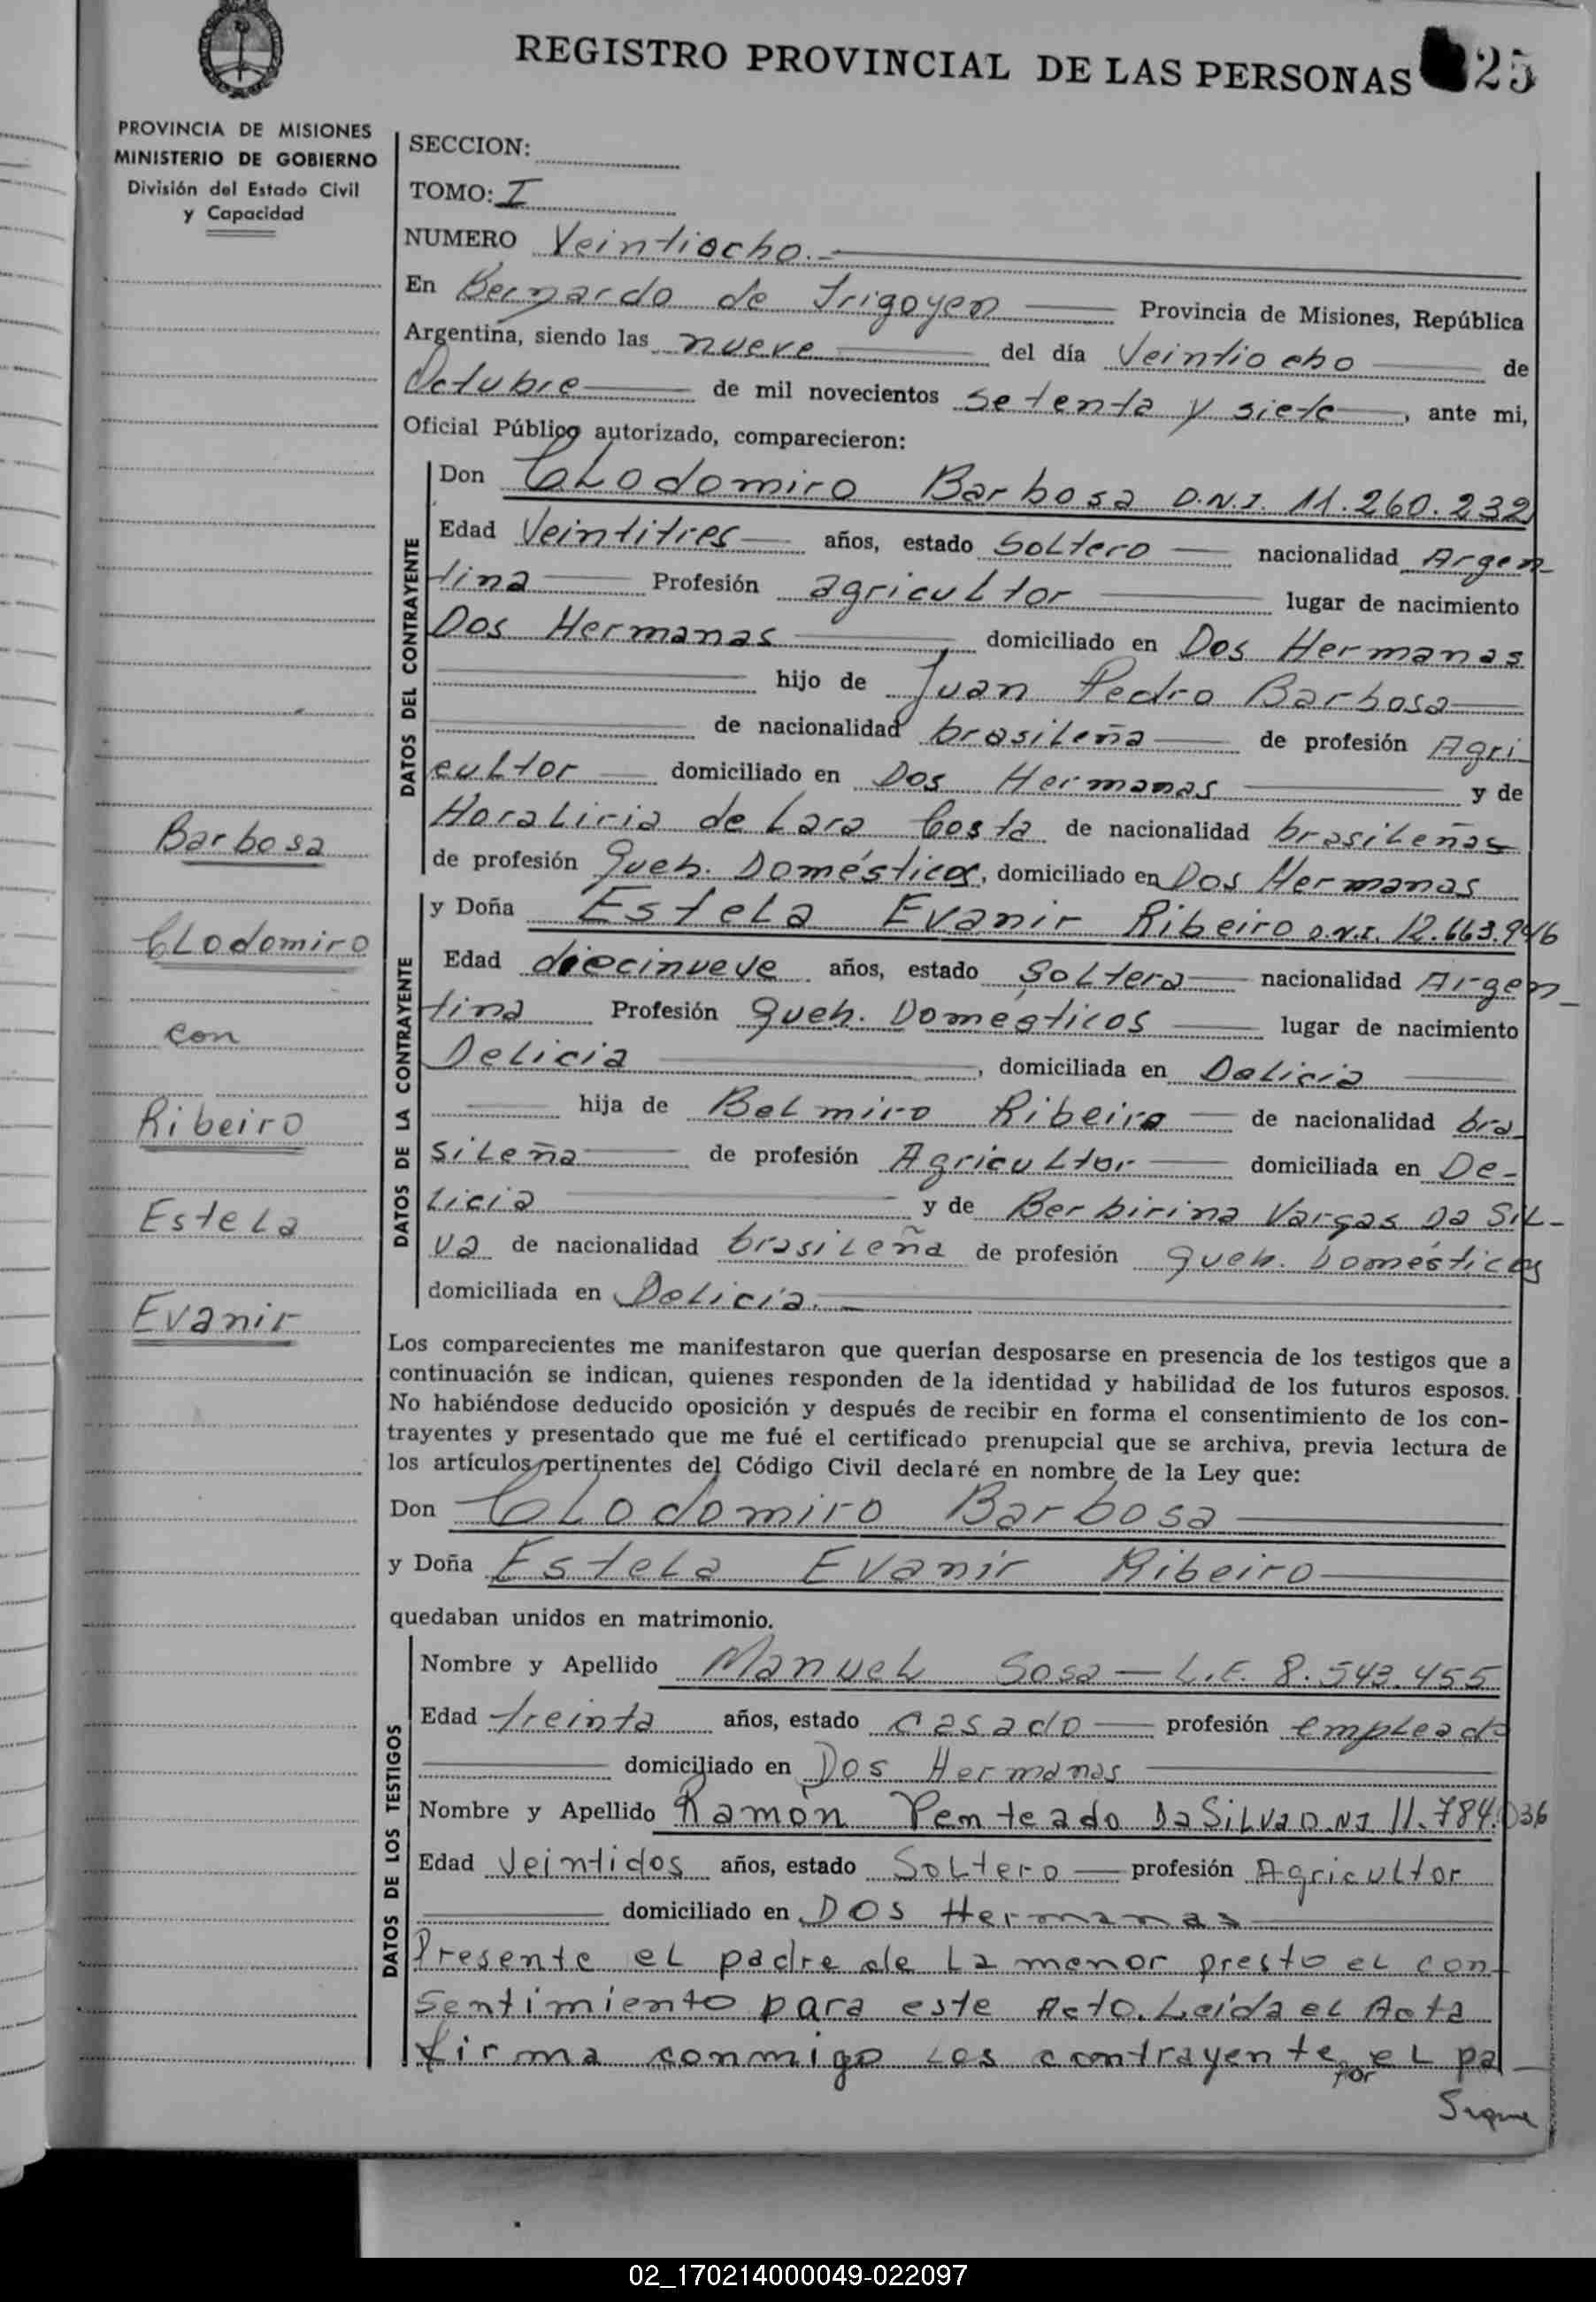 REGISTRO PROVINCIAL DE LAS PERSONAS 25
PROVINCIA DE MISIONES
MINISTERIO DE GOBIERNO
División del Estado Civil
y Capacidad
SECCION:
TOMO: I
NUMERO Veintiocho.-
En Bernardo de Irigoyen Provincia de Misiones, República
Argentina, siendo las nueve del día Veintiocho de
Octubre de mil novecientos setenta y siete, ante mi,
Oficial Público autorizado, comparecieron:
DATOS DEL CONTRAYENTE
Don Clodomiro Barbosa D.N.I. 11.260.232
Edad Veintitres años, estado Soltero nacionalidad Argen-
tina Profesión agricultor lugar de nacimiento
Dos Hermanas domiciliado en Dos Hermanas
hijo de Juan Pedro Barbosa
de nacionalidad brasileña de profesión Agri-
cultor domiciliado en Dos Hermanas y de
Horalicia de Lara Costa de nacionalidad brasileñas
de profesión Queh. Domésticos, domiciliado en Dos Hermanas
DATOS DE LA CONTRAYENTE
y Doña Estela Evanir Ribeiro D.N.I. 12.663.946
Edad diecinueve años, estado Soltera nacionalidad Argen-
tina Profesión Queh. Domésticos lugar de nacimiento
Delicia, domiciliada en Delicia
hija de Belmiro Ribeiro de nacionalidad bra-
sileña de profesión Agricultor domiciliada en De-
licia y de Berbirina Vargas Da Sil-
va de nacionalidad brasileña de profesión queh. Domésticos
domiciliada en Delicia.-
Barbosa
Clodomiro
con
Ribeiro
Estela
Evanir
Los comparecientes me manifestaron que querían desposarse en presencia de los testigos que a
continuación se indican, quienes responden de la identidad y habilidad de los futuros esposos.
No habiéndose deducido oposición y después de recibir en forma el consentimiento de los con-
trayentes y presentado que me fué el certificado prenupcial que se archiva, previa lectura de
los artículos pertinentes del Código Civil declaré en nombre de la Ley que:
Don Clodomiro Barbosa
y Doña Estela Evanir Ribeiro
quedaban unidos en matrimonio.
DATOS DE LOS TESTIGOS
Nombre y Apellido Manuel Sosa — L.E. 8.543.455
Edad treinta años, estado casado profesión empleado
domiciliado en Dos Hermanas
Nombre y Apellido Ramón Penteado Da Silva D.N.I 11.784.036
Edad Veintidos años, estado Soltero profesión Agricultor
domiciliado en Dos Hermanas
Presente el padre de la menor presto el con-
sentimiento para este Acto. Leída el Acta
firma conmigo los contrayente, por el pa-
Sigue
02_170214000049-022097